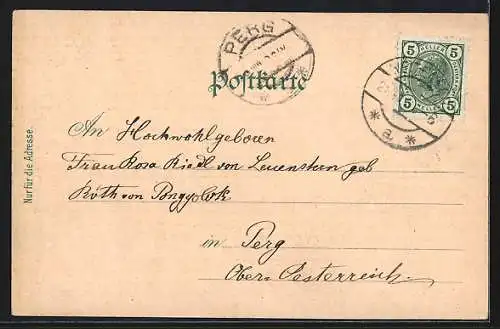 PERG
Postkarte
5 HELLER 5
5 HELLER 5
Nur für die Adresse.
An Hochwohlgeboren
Frau Rosa Riedl von Leuenstern geb
Róth von Pongyelok
in Perg
Ober-Oesterreich.